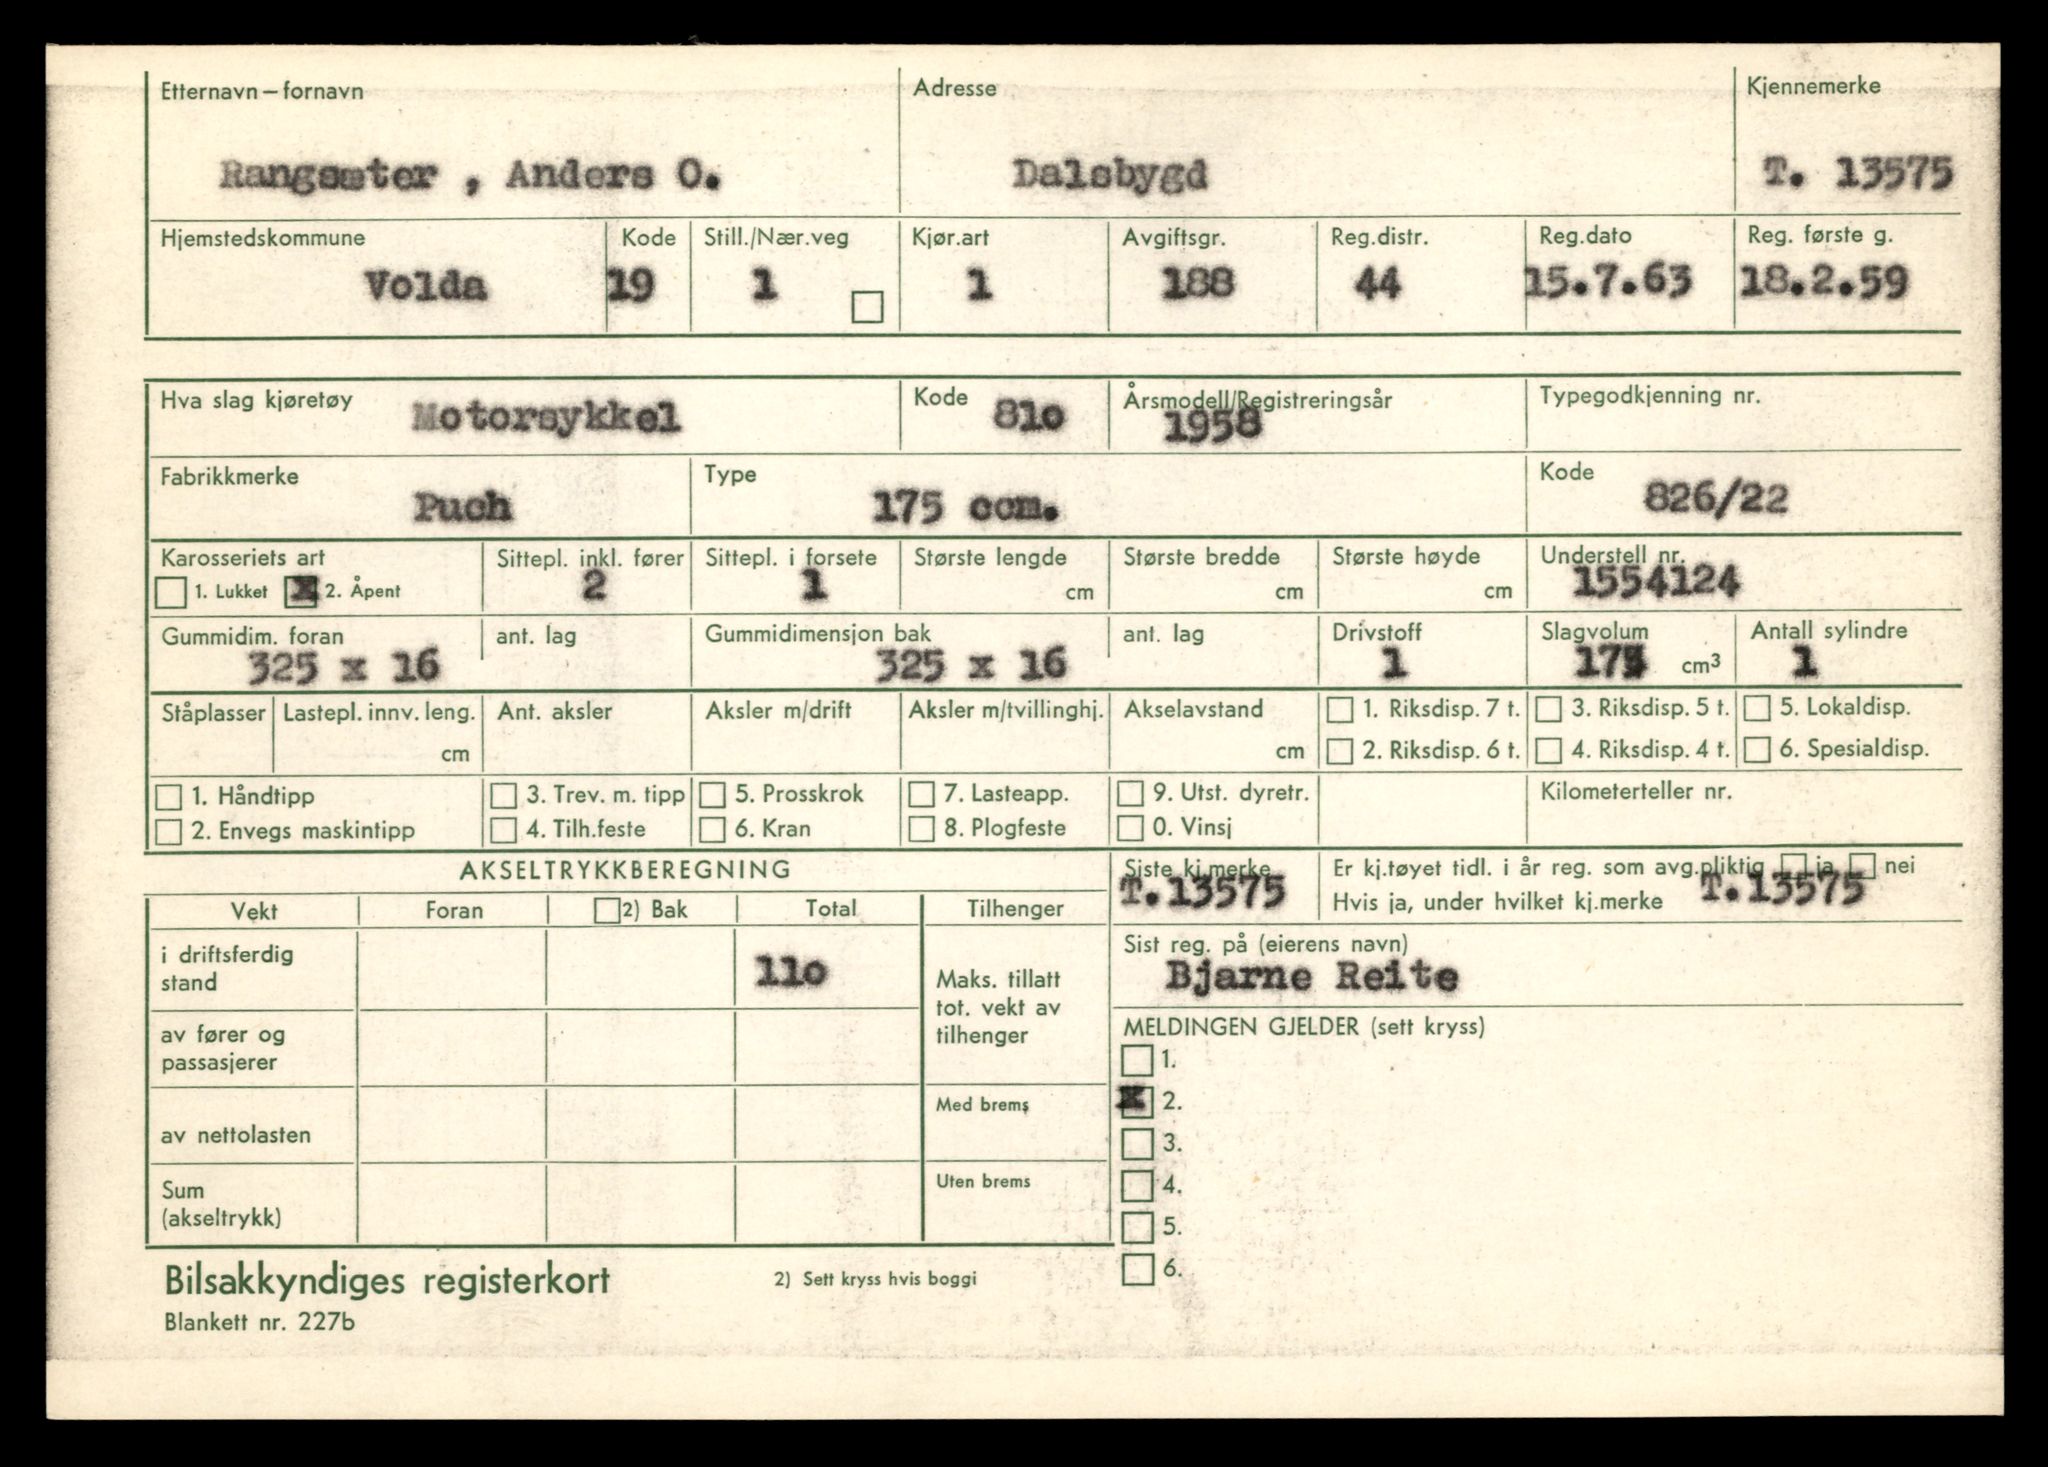 Etternavn – fornavn Adresse Kjennemerke
Rangsæter , Anders O. Dalsbygd T. 13575
Hjemstedskommune Kode Still./Nær.veg Kjør.art Avgiftsgr. Reg.distr. Reg.dato Reg. første g.
Volda 19 1 1 188 44 15.7.63 18.2.59
Hva slag kjøretøy Motorsykkel Kode 81o Årsmodell/Registreringsår 1958 Typegodkjenning nr.
Fabrikkmerke Type Kode
Puch 175 ccm. 826/22
Karosseriets art Sittepl. inkl. fører Sittepl. i forsete Største lengde Største bredde Største høyde Understell nr.
1. Lukket X 2. Åpent 2 1 cm cm cm 1554124
Gummidim. foran ant. lag Gummidimensjon bak ant. lag Drivstoff Slagvolum Antall sylindre
325 x 16 325 x 16 1 175 cm³ 1
Ståplasser Lastepl. innv. leng. Ant. aksler Aksler m/drift Aksler m/tvillinghj. Akselavstand 1. Riksdisp. 7 t. 3. Riksdisp. 5 t. 5. Lokaldisp.
cm cm 2. Riksdisp. 6 t. 4. Riksdisp. 4 t. 6. Spesialdisp.
1. Håndtipp 3. Trev. m. tipp 5. Prosskrok 7. Lasteapp. 9. Utst. dyretr. Kilometerteller nr.
2. Envegs maskintipp 4. Tilh.feste 6. Kran 8. Plogfeste 0. Vinsj
AKSELTRYKKBEREGNING
Siste kj.merke Er kj.tøyet tidl. i år reg. som avg.pliktig ja nei
T.13575 Hvis ja, under hvilket kj.merke T.13575
Vekt Foran 2) Bak Total Tilhenger
Sist reg. på (eierens navn)
Bjarne Reite
i driftsferdig
stand 11o
Maks. tillatt
tot. vekt av
tilhenger
av fører og
passasjerer
MELDINGEN GJELDER (sett kryss)
1.
X 2.
3.
4.
5.
6.
av nettolasten Med brems
Sum
(akseltrykk) Uten brems
Bilsakkyndiges registerkort 2) Sett kryss hvis boggi
Blankett nr. 227b